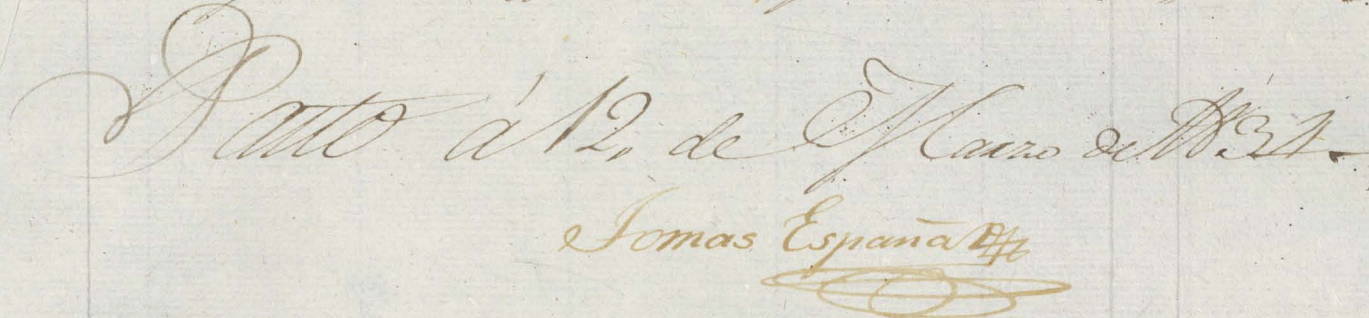 Pasto á 12, de Marzo de 1834.
Tomas España